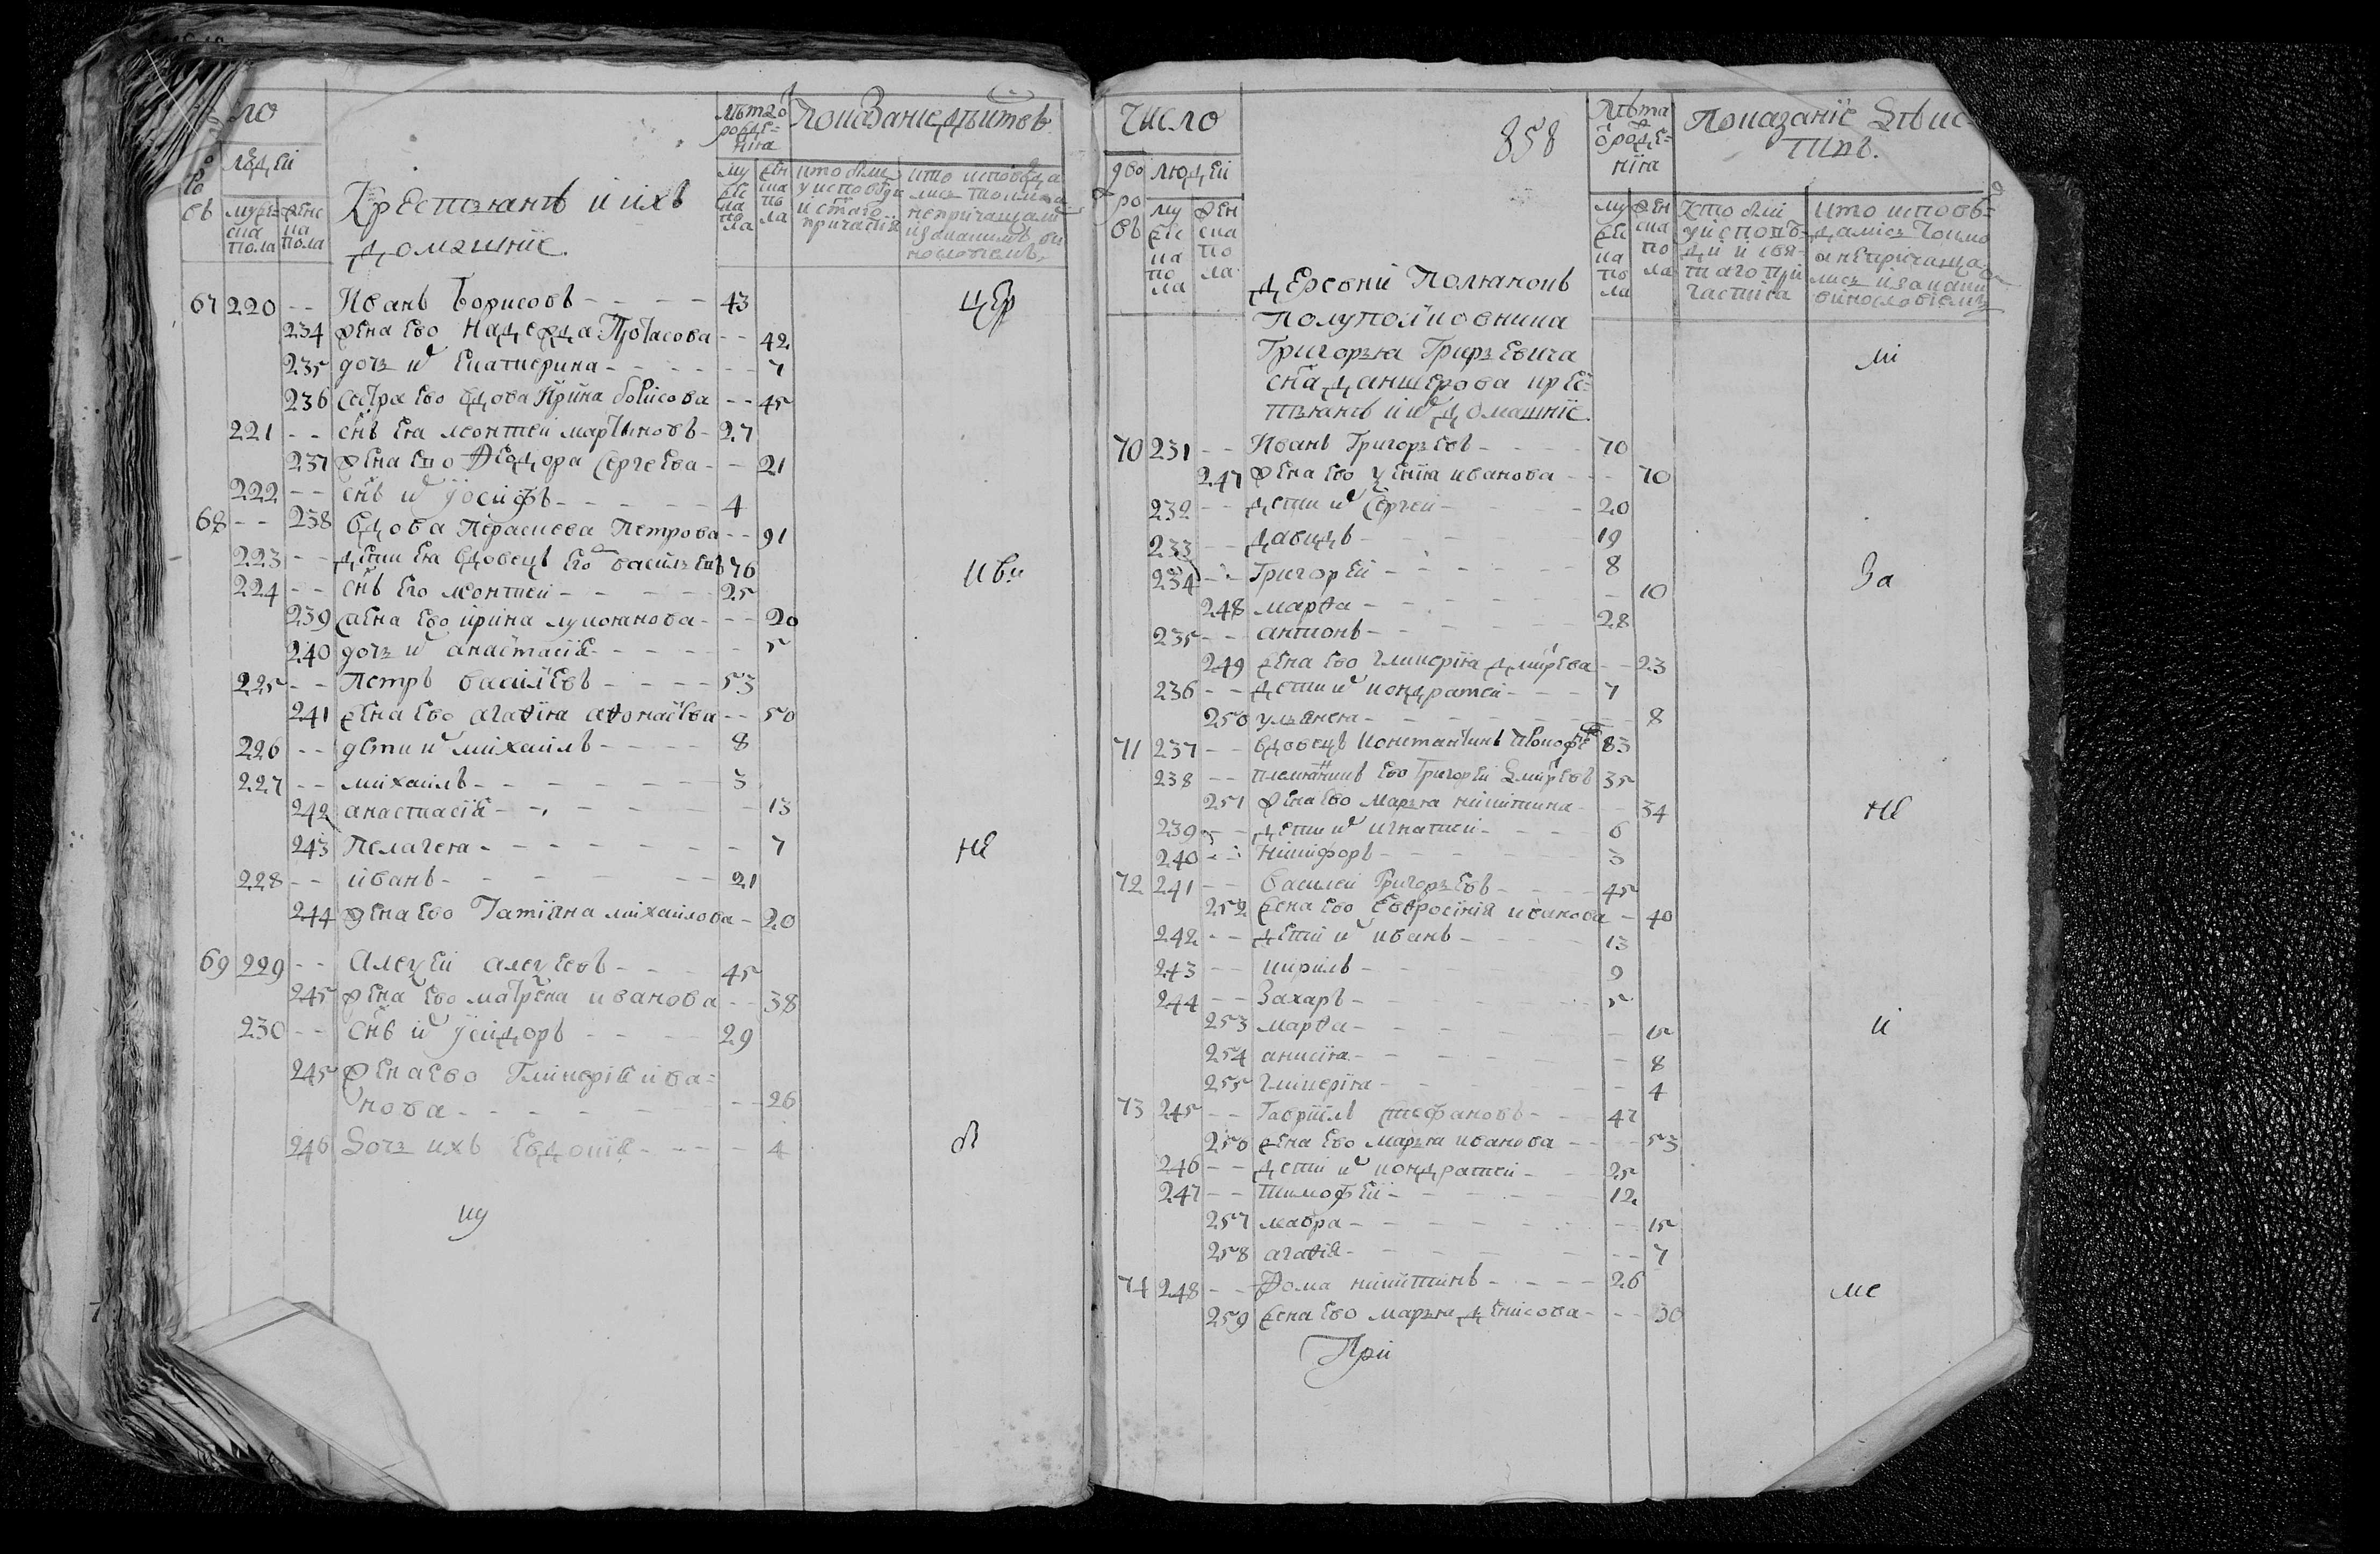 ло
людей
ро
въ
мужеска пола
женска пола
Крестьянъ и ихъ
домашние
лѣта о рожде=
ния
му
жес
ка
по
ла
жен
ска
по
ла
Показание дѣйствъ
кто был
у исповѣди
и стаго
причастия
кто исповѣда
лись токмо а
не причащали
67 220 -- Иванъ Борисовъ - - - - 43
234 жена ево Надежда Протасова -- 42
235 дочь их Екатиерина - - - - - 7
236 сестра ево вдова Ирина борисова -- 45
221 -- снъ ея леонтей мартиновъ - 27
237 жена ево Федора Сергеева - - 21
222 -- снъ их Иосифъ - - - - - 4
68 -- 238 вдова Параскева Петрова -- 91
223 -- дети ея вдовецъ его васильевъ 76
224 -- снъ Его леонтей - - - - 25
239 жена ево ирина лукоянова - - - 20
240 дочь их анастасия - - - - - 5
225 -- Петръ василіевъ - - - - 53
241 жена ево агаѳия аѳонасіева -- 50
226 -- дети их михаилъ - - - - 8
227 -- михаилъ - - - - - - 3
242 анастасия - - - - - - 13
243 Пелагея - - - - - - - 7
228 -- иванъ - - - - - - 21
244 жена ево Татияна михаилова - 20
69 229 -- Алексей алексеевъ - - - 45
245 жена ево матрена иванова -- 38
230 -- Снъ их Исидоръ - - - - 29
245 жена ево Гликерия ива=
нова - - - - - - - - 26
246 Дочь ихъ Евдокия - - - - 4
цер
кви
не
б
ку
Число
дво
ро
въ
людей
му
жес
ка
по
ла
жен
ска
по
ла
858
Лѣта
о рожде=
ния
му
жес
ка
по
ла
жен
ска
по
ла
Показание дѣис
твъ.
Кто были
у исповѣ-
ди и свя-
таго при
частия
кто исповѣ=
дались токмо
а не причаща
лись и за каки
винословиемъ
Деревни Полканова
Полуполковника
Григорья Григорьевича
сна данилова крес=
тьянъ и их домашние
70 231 -- Иванъ Григорьевъ - - - 70
247 жена ево Ксения иванова - - - 70
232 -- дети их Сергей - - - - 20
233 -- давидъ - - - - - - 19
234 -- Григорей - - - - - - 8
248 марѳа - - - - - - 10
235 -- антонъ - - - - - - 28
249 жена ево гликерия дмитриева -- 23
236 -- дети их кондратей - - - 7
250 ульянея - - - - - - - 8
71 237 -- вдовецъ Константинъ Прокофе 83
238 -- племянникъ ево Григорей Дмитревъ 35
251 жена ево Марья никитина - - 34
239 -- дети их игнатей - - - - 6
240 -- никифоръ - - - - - 3
72 241 -- василей Григорьевъ - - - 45
252 жена ево Евфросиния иванова - 40
242 -- дети их иванъ - - - - 13
243 -- кирилъ - - - - - - 9
244 -- Захаръ - - - - - - 5
253 марѳа - - - - - - 15
254 анисия - - - - - - 8
255 гликерия - - - - - - 4
73 245 -- Гавриилъ стефановъ - - 47
250 жена ево марья иванова - - - 53
246 -- дети их кондратей - - - 25
247 -- тимофей - - - - - 12
257 мавра - - - - - - - 15
258 агаѳия - - - - - - - 7
74 248 -- Фома никитинъ - - - - 26
259 жена ево марья денисова - - - 30
ли
За
не
и
ме
При